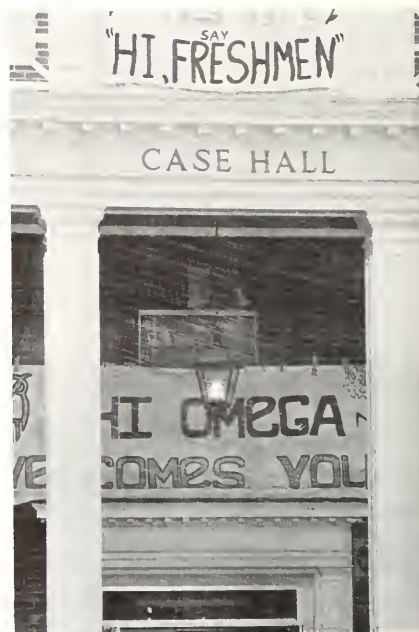 SAY
"HI, FRESHMEN"
CASE HALL
HI OMEGA
COMES YOU